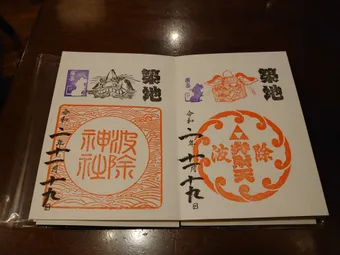 築地
波除
弁財天
令和二年十一月十九日
築地
波除
神社
令和二年十一月十九日